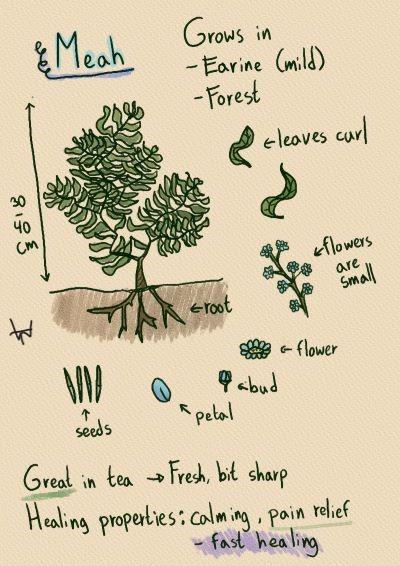 Meah
Grows in
- Earine (mild)
- Forest
leaves curl
30
-
40
cm
flowers
are
small
root
flower
bud
petal
seeds
Great in tea → Fresh, bit sharp
Healing properties: calming, pain relief
- fast healing